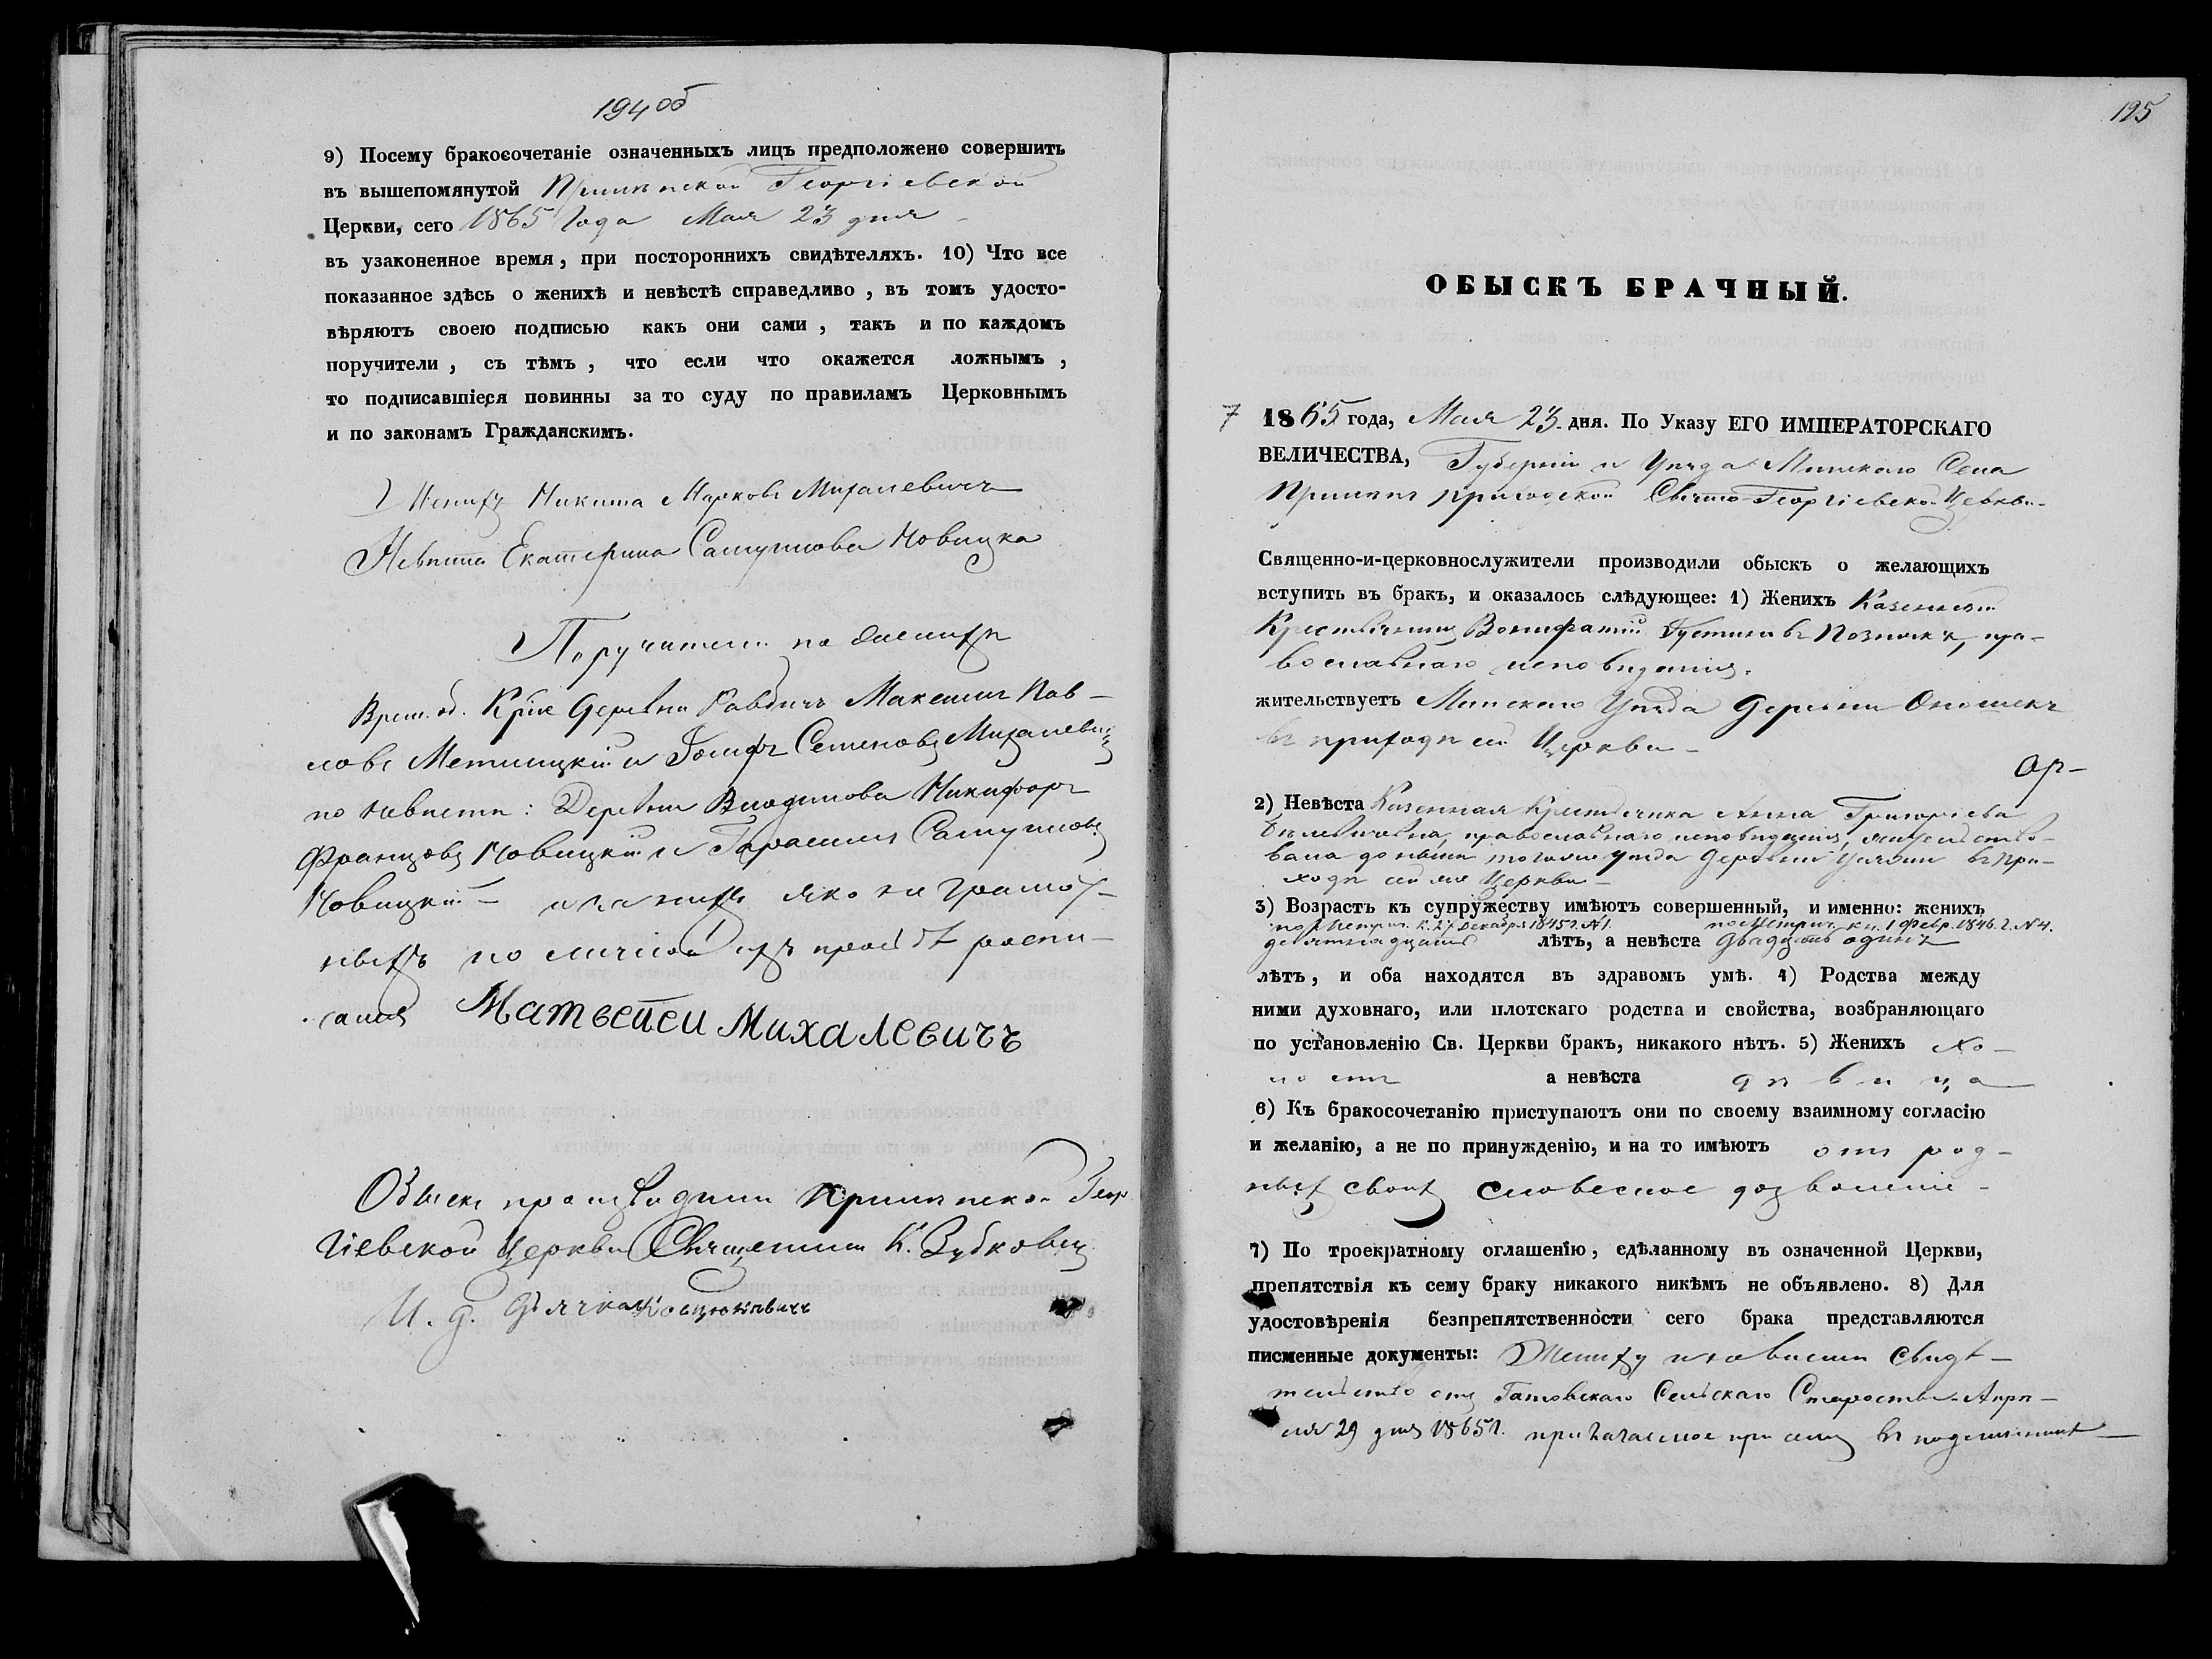 194 об
9) Посему бракосочетаніе означенныхъ лицъ предположено совершить
въ вышепомянутой Георгіевской
Церкви, сего 1865 Года Мая 23 дня
въ узаконенное время, при постороннихъ свидѣтеляхъ. 10) Что все
показанное здѣсь о женихѣ и невѣстѣ справедливо, въ томъ удосто-
вѣряютъ своею подписью какъ они сами, такъ и по каждомъ
поручители, съ тѣмъ, что если что окажется ложнымъ,
то подписавшіеся повинны за то суду по правиламъ Церковнымъ
и по законамъ Гражданскимъ.
Женихъ Никита Марковъ Михалевичъ
Невѣста Екатерина Самуилова Новицка
Поручители по женихѣ
Деревни Максимъ Пав-
ловъ Метлицкій и Іосифъ Семеновъ Михалевичъ
по невѣстѣ: Деревни Никифоръ
Францовъ Новицкій и Гарасимъ Самуиловъ
Новицкій – а за нихъ яко не грамот-
ныхъ по личной ихъ прозьбѣ роспи-
сался Матвѣй Михалевичъ
Обыскъ производили Геор-
гіевской Церкви Священникъ К. Зубковичъ
И. д. дьячка
195
ОБЫСКЪ БРАЧНЫЙ.
7 1865 года, Мая 23 дня. По Указу ЕГО ИМПЕРАТОРСКАГО
ВЕЛИЧЕСТВА, Губерніи и Уѣзда Минскаго Села
приходской Свято-Георгіевской Церкви
Священно-и-церковнослужители производили обыскъ о желающихъ
вступить въ бракъ, и оказалось слѣдующее: 1) Женихъ Казенный
Крестьянинъ Вонифатій Іустиновъ Познякъ, пра-
вославнаго исповѣданія.
жительствуетъ Минскаго Уѣзда деревни
въ приходѣ сей Церкви –
2) Невѣста Казенная Крестьянка Анна Григоріева
православнаго исповѣданія, жительство-
вала до нынѣ того же уѣзда деревни въ при-
ходѣ сей же Церкви –
3) Возрастъ къ супружеству имѣютъ совершенный, и именно: женихъ
по Метрич. К. 27 Декабря 1845 г. №1. по Метрич. кн. 1 Февр. 1846. г. №4.
девятнадцать лѣтъ, а невѣста двадцать одинъ
лѣтъ, и оба находятся въ здравомъ умѣ. 4) Родства между
ними духовнаго, или плотскаго родства и свойства, возбраняющаго
по установленію Св. Церкви бракъ, никакого нѣтъ. 5) Женихъ хо-
лостъ а невѣста дѣвица
6) Къ бракосочетанію приступаютъ они по своему взаимному согласію
и желанію, а не по принужденію, и на то имѣютъ отъ род-
ныхъ своихъ словесное дозволеніе –
7) По троекратному оглашенію, сдѣланному въ означенной Церкви,
препятствія къ сему браку никакого никѣмъ не объявлено. 8) Для
удостовѣренія безпрепятственности сего брака представляются
писменные документы: Жениху и невѣстѣ свидѣ-
тельство отъ Гатовскаго Сельскаго Старосты Апрѣ-
ля 29 дня 1865 г. прилагаемое при семъ въ подлинникѣ –